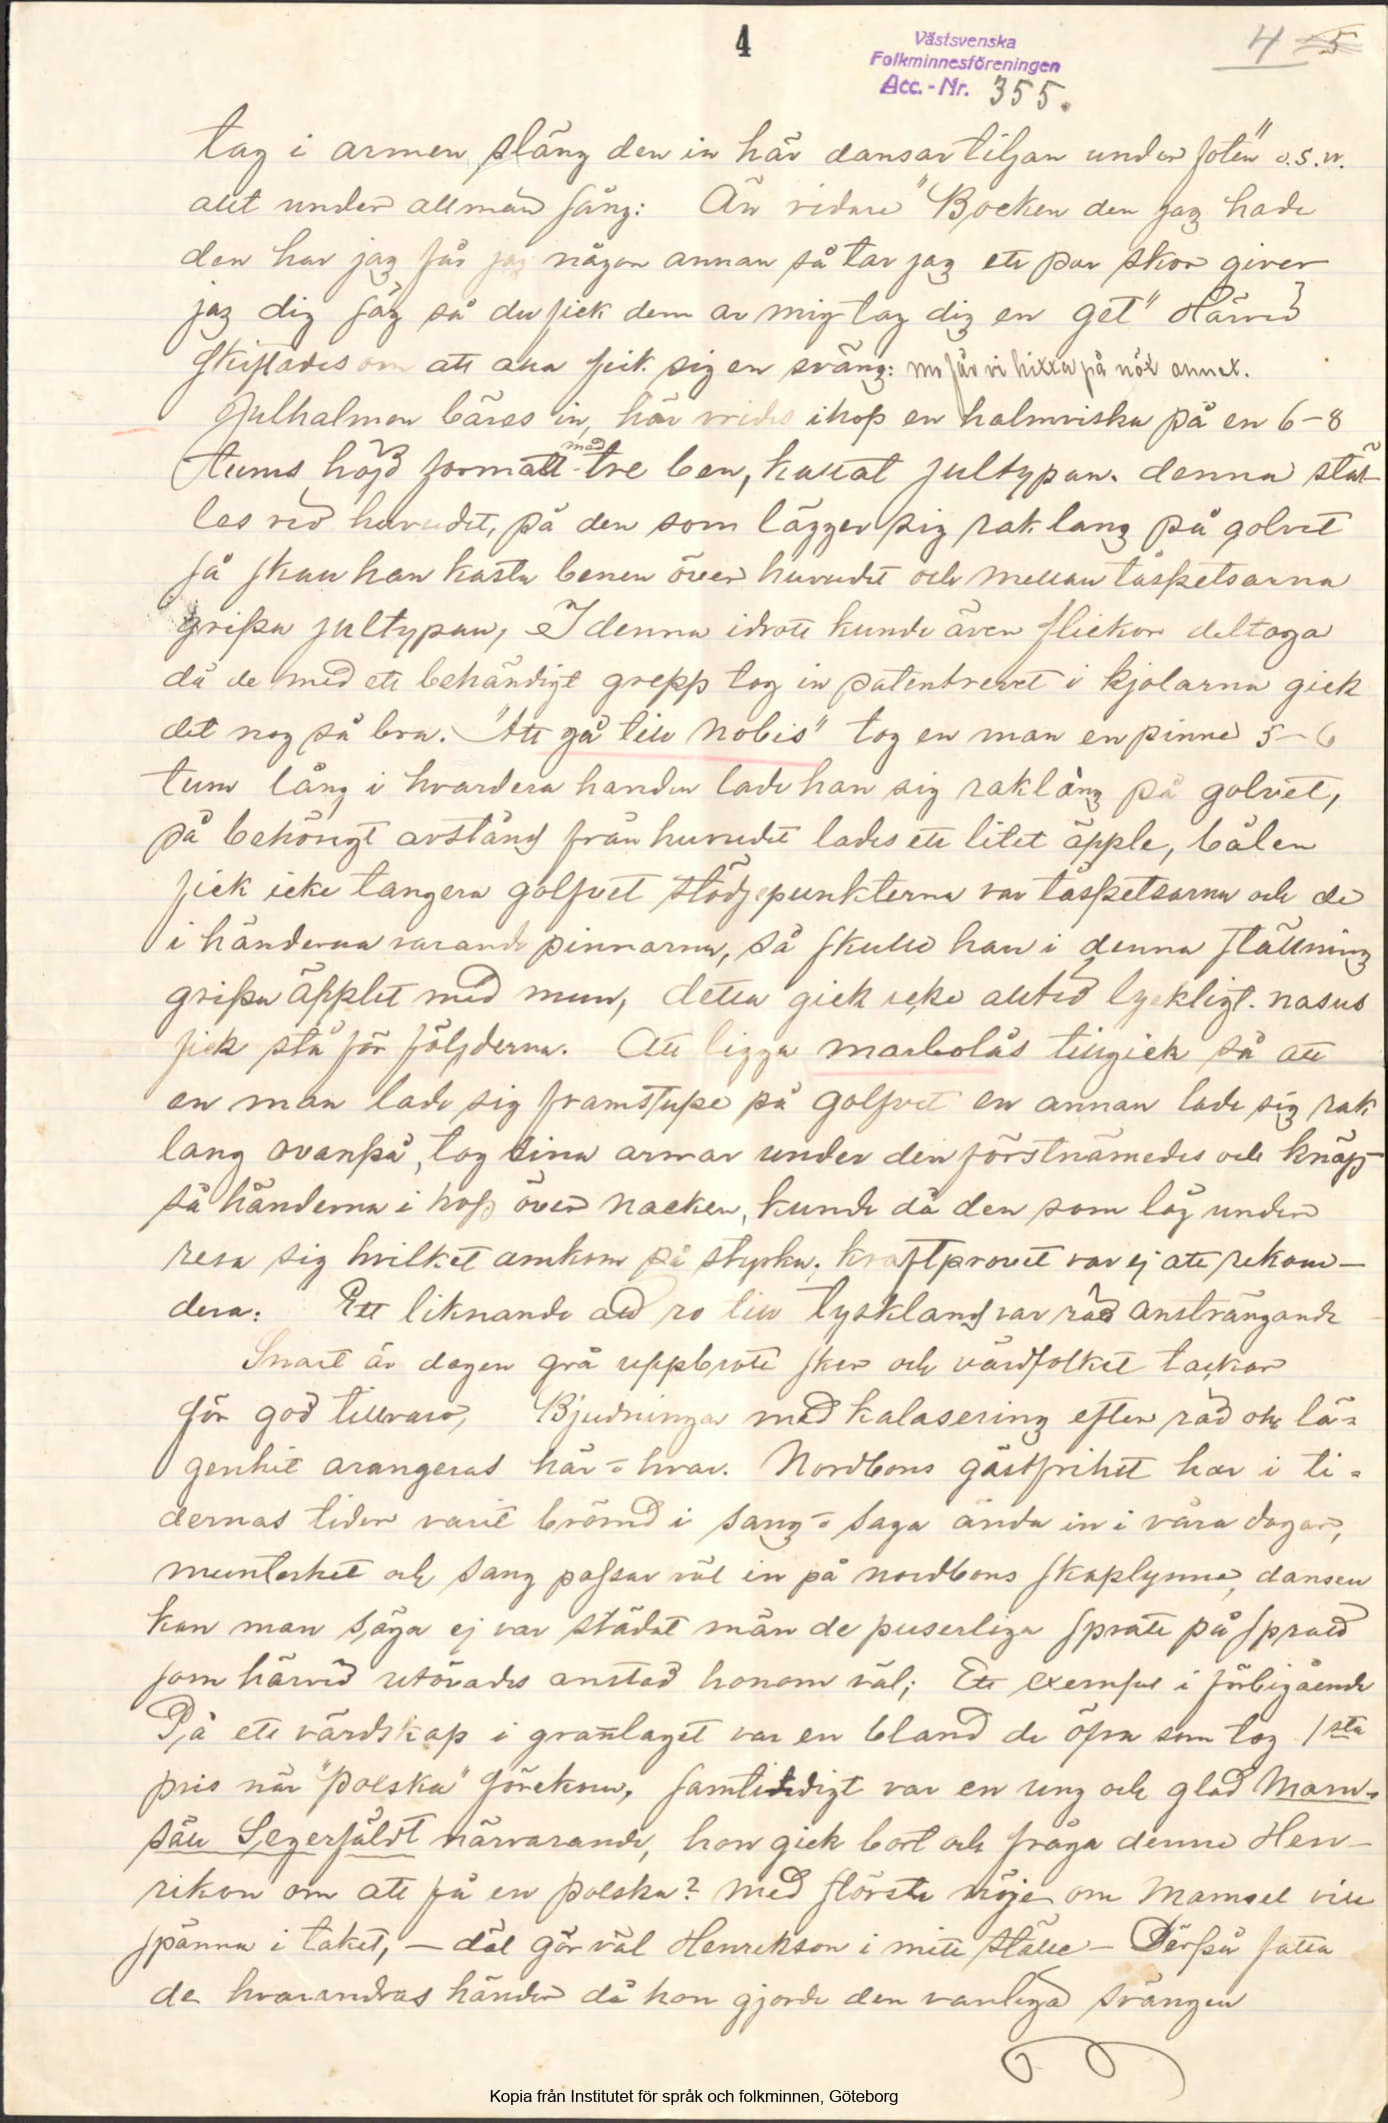 4
4 5
Västsvenska
Folkminnesföreningen
Acc.-Nr. 355.
tag i armen släng den in här dansar tiljan under foten" o.s.v.
allt under allmän sång: Än vidare "Bocken den jag hade
den har jag får jag någon annan så tar jag ett par skor giver
jag dig säg så du fick dem av mig tag dig en get" Härvid
skiftades om att alla fick sig en sväng: nu får vi hitta på nôt annat.
Julhalmen bäres in, här vrides ihop en halmviska på en 6-8
tums höjd format med tre ben, kallat jultypan. denna stäl-
les vid huvudet, på den som lägger sig raklang på golvet
så skall han kasta benen över huvudet och mellan tåspetsarna
gripa jultypan, I denna idrott kunde även flickor deltaga
då de med ett behändigt grepp tog in patentrevet i kjolarna gick
det nog så bra. "Att gå till Nobis" tog en man en pinne 5-6
tum lång i hvardera handen lade han sig raklång på golvet,
på behörigt avstånd från huvudet lades ett litet äpple, bålen
fick icke tangera golfvet stödjepunkterna var tåspetsarna och de
i händerna varande pinnarna, så skulle han i denna ställning
gripa äpplet med mun, detta gick icke alltid lyckligt. nasus
fick stå för följderna. Att ligga marbolås tillgick så att
en man lade sig framstupe på golfvet en annan lade sig rak
lang ovanpå, tog sina armar under den förstnämdes och knäpp-
tä händerna i hop över nacken, kunde då den som låg under
resa sig hvilket amkom på styrka, kraftprovet var ej att rekom-
dera: Ett liknande att ro till tyskland var rätt ansträngande
Snart är dagen grå uppbrott sker och värdfolket tackar
för god tillvaro, Bjudningar med kalasering efter råd och lä-
genhet arangeras här o hvar. Nordbons gästfrihet har i ti-
dernas tider varit brömd i sang o saga ända in i våra dagar,
munterhet och sang passar väl in på nordbons skaplynne, dansen
kan man säga ej var städat män de puserliga spratt på spratt
som härvid utövades anstod honom väl; Ett exempel i förbigående
På ett värdskap i granlaget var en bland de öfra som tog 1sta
pris när "polska" förekom, samtidigt var en ung och glad Mam-
säll Segerfäldt närvarande, hon gick bort och fråga denne Hen-
rikson om att få en polska? med största nöje om Mamsel vill
spänna i taket, — dät gör väl Henrikson i mitt ställe — Därpå fatta
de hvarandras händer då hon gjorde den vanliga svängen
Kopia från Institutet för språk och folkminnen, Göteborg